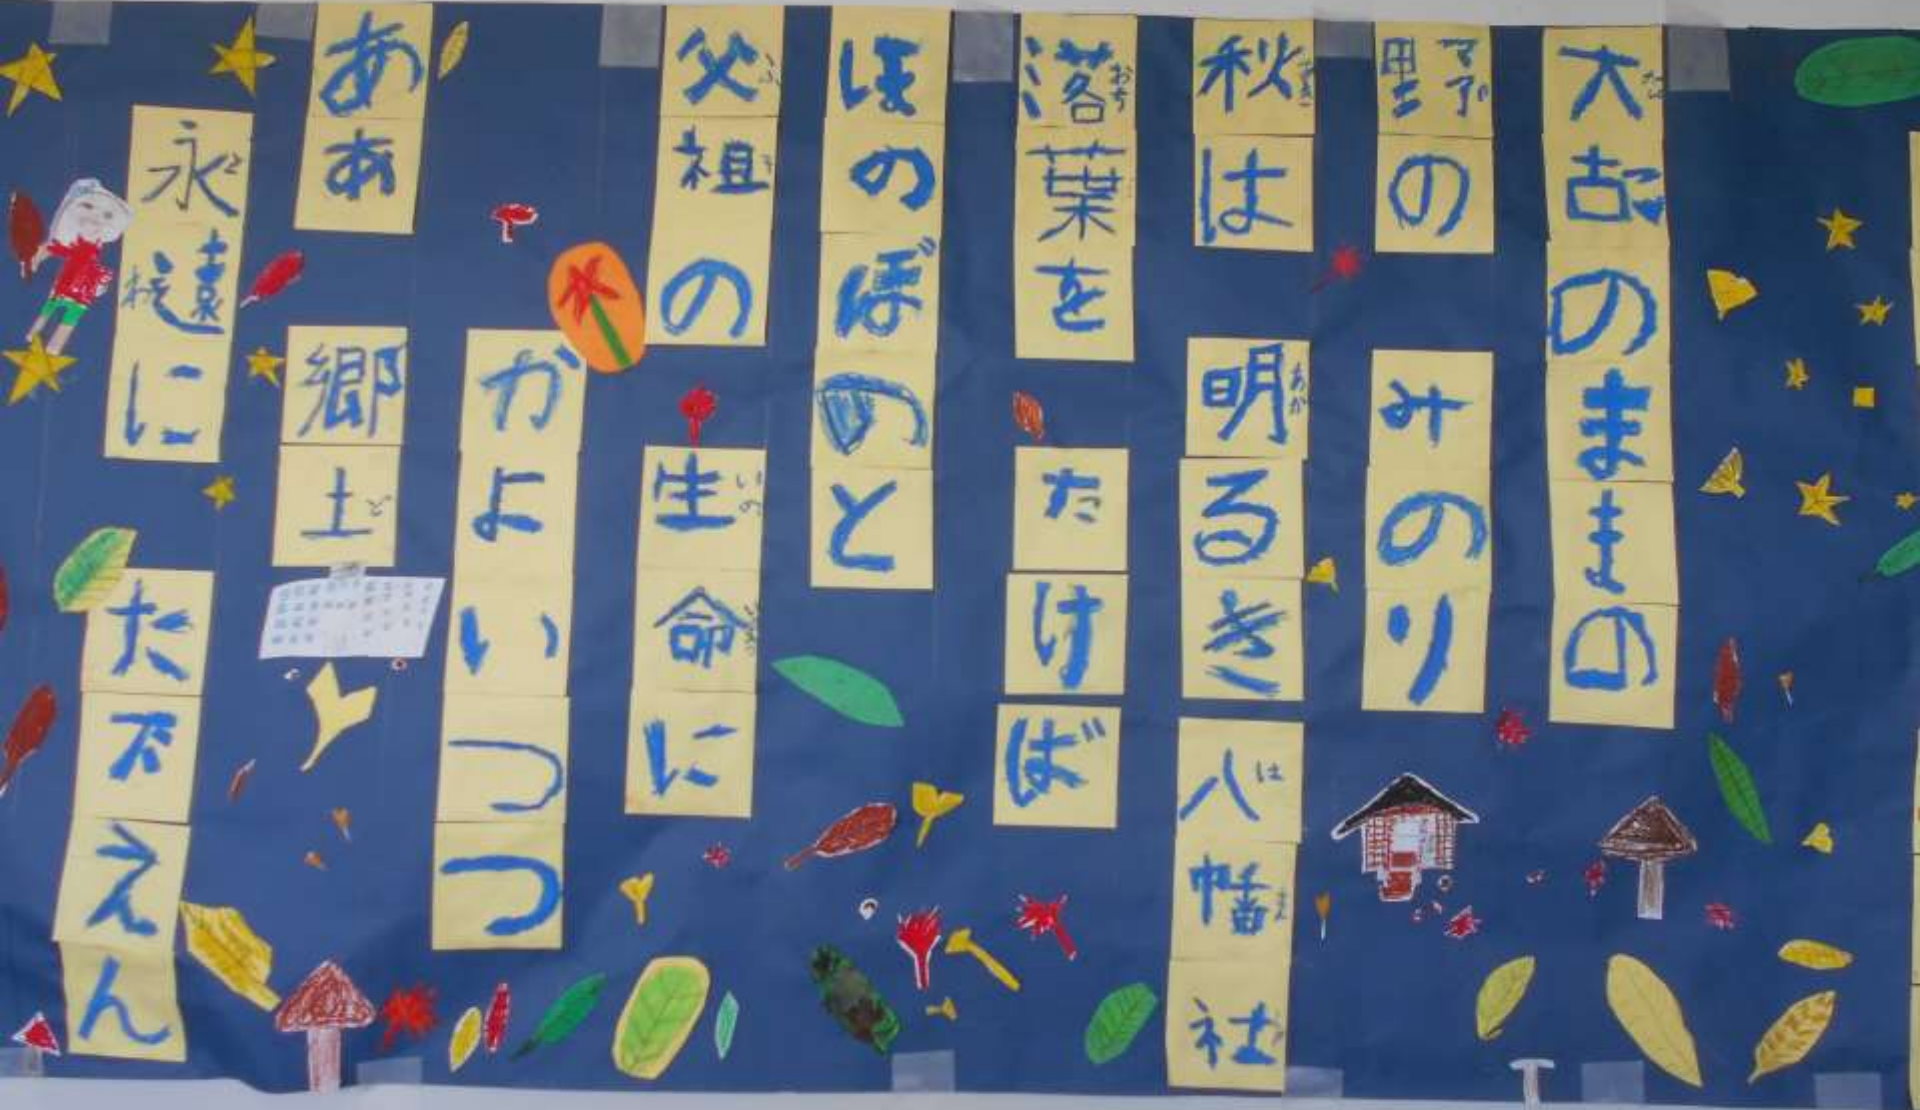 太古のままの
野の　みのり
秋は　明るき　八幡社
落葉を　たけば
ほのぼのと
父祖の　生命に
かよいつつ
ああ　郷土
永遠に　たたえん